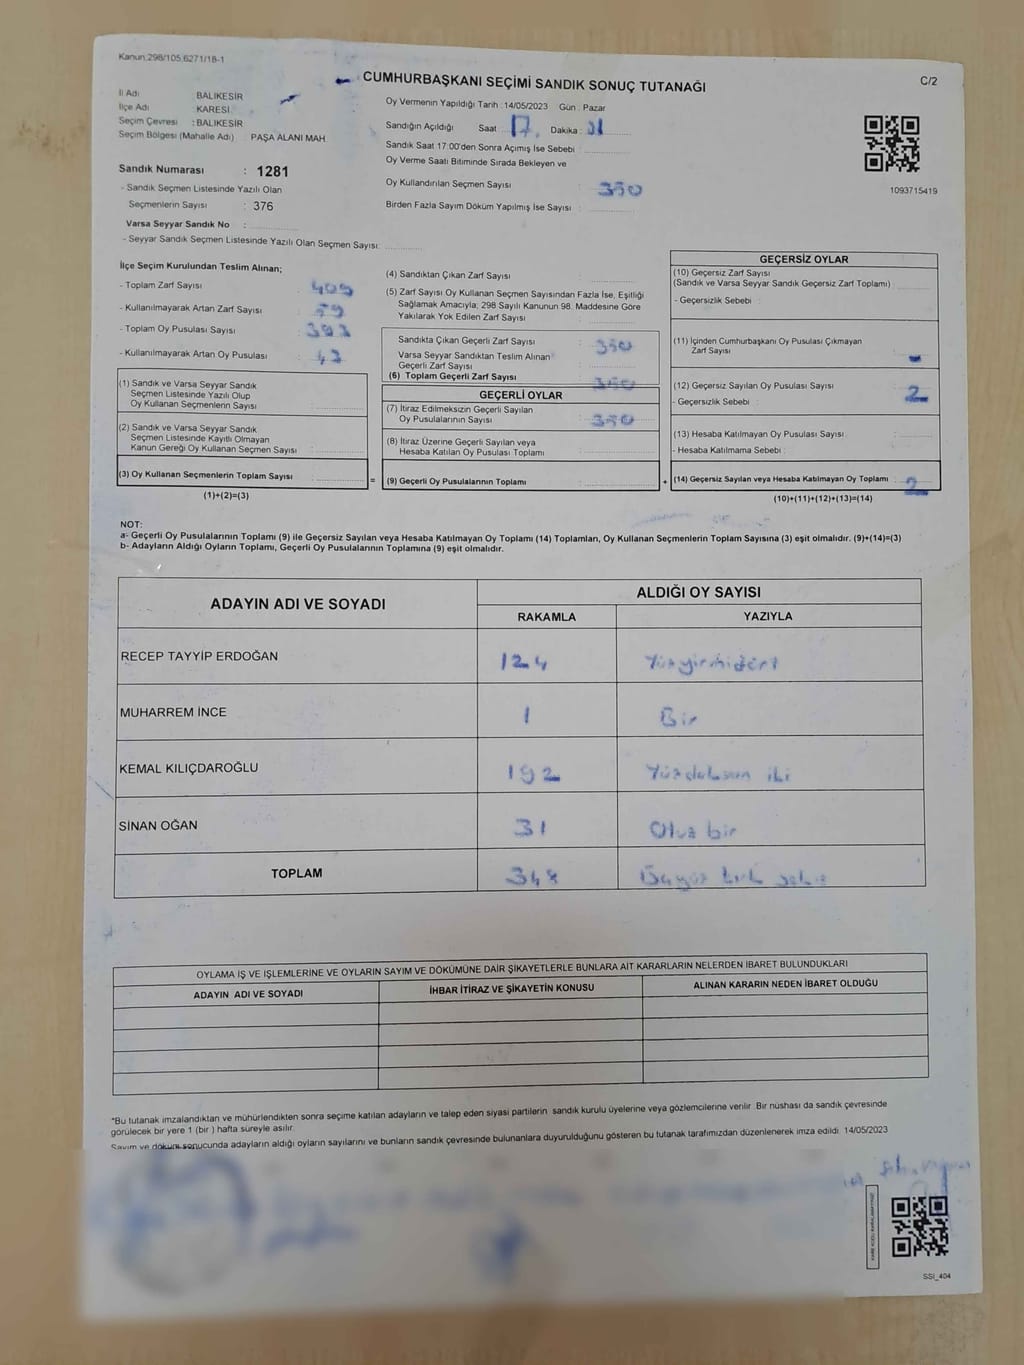 Kanun.298/105,6271/18-1
CUMHURBAŞKANI SEÇİMİ SANDIK SONUÇ TUTANAĞI
C/2
İl Adı BALIKESİR
İlçe Adı KARESİ
Seçim Çevresi : BALIKESİR
Seçim Bölgesi (Mahalle Adı) : PAŞA ALANI MAH
Oy Vermenin Yapıldığı Tarih : 14/05/2023 Gün : Pazar
Sandığın Açıldığı Saat : 17 Dakika : 31
Sandık Saat 17:00'den Sonra Açımış İse Sebebi :
Oy Verme Saati Bitiminde Sırada Bekleyen ve
Oy Kullandırılan Seçmen Sayısı : 350
Birden Fazla Sayım Döküm Yapılmış İse Sayısı :
1093715419
Sandık Numarası : 1281
- Sandık Seçmen Listesinde Yazılı Olan
Seçmenlerin Sayısı : 376
Varsa Seyyar Sandık No :
- Seyyar Sandık Seçmen Listesinde Yazılı Olan Seçmen Sayısı:
İlçe Seçim Kurulundan Teslim Alınan;
- Toplam Zarf Sayısı : 409
- Kullanılmayarak Artan Zarf Sayısı : 59
- Toplam Oy Pusulası Sayısı : 393
- Kullanılmayarak Artan Oy Pusulası : 43
(1) Sandık ve Varsa Seyyar Sandık
Seçmen Listesinde Yazılı Olup
Oy Kullanan Seçmenlerin Sayısı :
(2) Sandık ve Varsa Seyyar Sandık
Seçmen Listesinde Kayıtlı Olmayan
Kanun Gereği Oy Kullanan Seçmen Sayısı :
(3) Oy Kullanan Seçmenlerin Toplam Sayısı :
(1)+(2)=(3)
=
(4) Sandıktan Çıkan Zarf Sayısı :
(5) Zarf Sayısı Oy Kullanan Seçmen Sayısından Fazla İse, Eşitliği
Sağlamak Amacıyla, 298 Sayılı Kanunun 98. Maddesine Göre
Yakılarak Yok Edilen Zarf Sayısı :
Sandıkta Çıkan Geçerli Zarf Sayısı : 350
Varsa Seyyar Sandıktan Teslim Alınan
Geçerli Zarf Sayısı :
(6) Toplam Geçerli Zarf Sayısı : 350
GEÇERLİ OYLAR
(7) İtiraz Edilmeksizin Geçerli Sayılan
Oy Pusulalarının Sayısı : 350
(8) İtiraz Üzerine Geçerli Sayılan veya
Hesaba Katılan Oy Pusulası Toplamı :
(9) Geçerli Oy Pusulalarının Toplamı :
+
GEÇERSİZ OYLAR
(10) Geçersiz Zarf Sayısı
(Sandık ve Varsa Seyyar Sandık Geçersiz Zarf Toplamı) :
- Geçersizlik Sebebi :
(11) İçinden Cumhurbaşkanı Oy Pusulası Çıkmayan
Zarf Sayısı :
(12) Geçersiz Sayılan Oy Pusulası Sayısı : 2
- Geçersizlik Sebebi :
(13) Hesaba Katılmayan Oy Pusulası Sayısı :
- Hesaba Katılmama Sebebi :
(14) Geçersiz Sayılan veya Hesaba Katılmayan Oy Toplamı : 2
(10)+(11)+(12)+(13)=(14)
NOT:
a- Geçerli Oy Pusulalarının Toplamı (9) ile Geçersiz Sayılan veya Hesaba Katılmayan Oy Toplamı (14) Toplamları, Oy Kullanan Seçmenlerin Toplam Sayısına (3) eşit olmalıdır. (9)+(14)=(3)
b- Adayların Aldığı Oyların Toplamı, Geçerli Oy Pusulalarının Toplamına (9) eşit olmalıdır.
ADAYIN ADI VE SOYADI
ALDIĞI OY SAYISI
RAKAMLA YAZIYLA
RECEP TAYYİP ERDOĞAN 124 Yüzyirmidört
MUHARREM İNCE 1 Bir
KEMAL KILIÇDAROĞLU 192 Yüzdoksan iki
SİNAN OĞAN 31 Otuz bir
TOPLAM 348 Üçyüz kırk sekiz
OYLAMA İŞ VE İŞLEMLERİNE VE OYLARIN SAYIM VE DÖKÜMÜNE DAİR ŞİKAYETLERLE BUNLARA AİT KARARLARIN NELERDEN İBARET BULUNDUKLARI
ADAYIN ADI VE SOYADI İHBAR İTİRAZ VE ŞİKAYETİN KONUSU ALINAN KARARIN NEDEN İBARET OLDUĞU
*Bu tutanak imzalandıktan ve mühürlendikten sonra seçime katılan adayların ve talep eden siyasi partilerin sandık kurulu üyelerine veya gözlemcilerine verilir. Bir nüshası da sandık çevresinde
görülecek bir yere 1 (bir) hafta süreyle asılır.
Sayım ve döküm sonucunda adayların aldığı oyların sayılarını ve bunların sandık çevresinde bulunanlara duyurulduğunu gösteren bu tutanak tarafımızdan düzenlenerek imza edildi. 14/05/2023
KARE KODU KARALAMAYINIZ
SSI_404